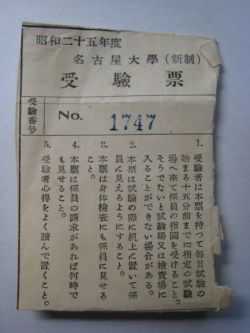 昭和二十五年度
名古屋大學(新制)
受驗票
受驗番号
No. 1747
1. 受驗者は本票を持つて毎日試驗の
始まる十五分前までに指定の試驗
場へ來て係員の指圖を受けること。
そうでないと試驗場又は檢査場に
入ることができない場合がある。
2. 本票は試驗の際に机上に置いて係
員に見えるようにすること。
3. 本票は身体檢査にも係員に見せる
こと。
4. 本票は係員の請求があれば何時で
も見せること。
5. 受驗者心得をよく讀んで置くこと。